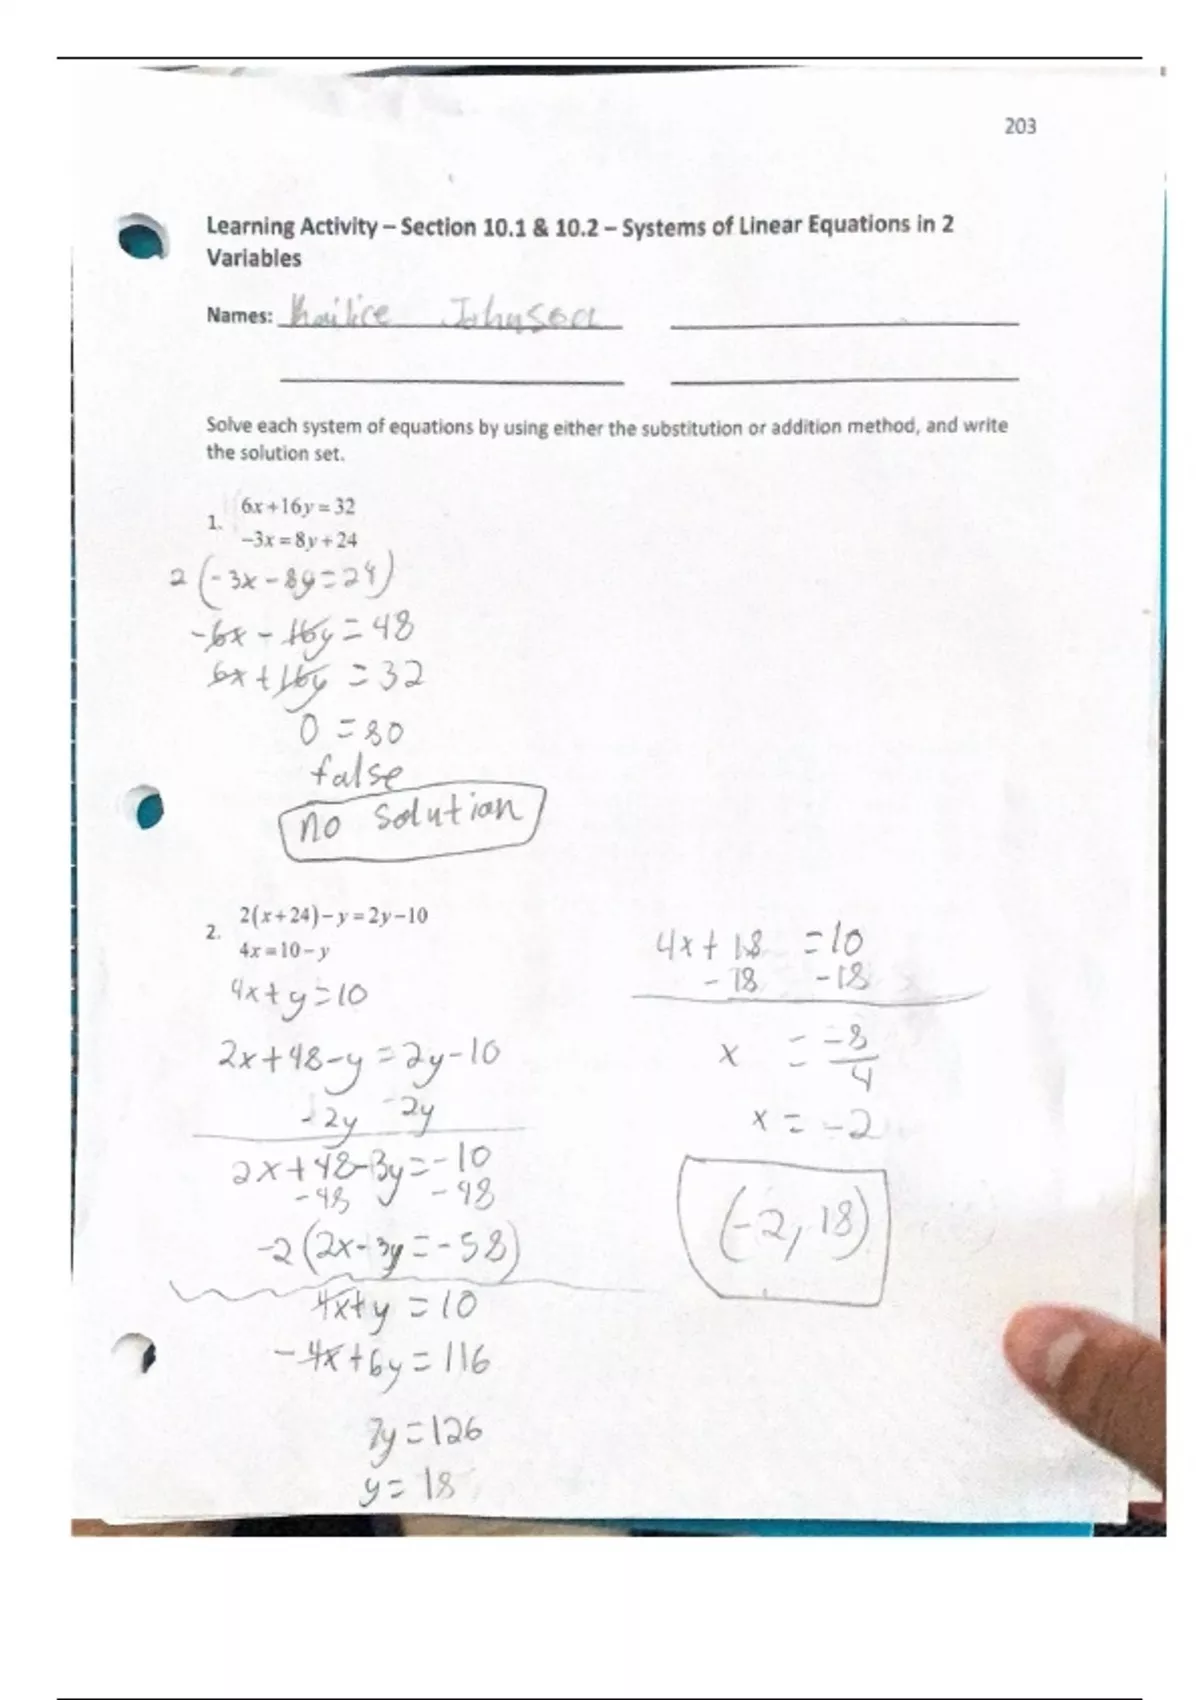 203
Learning Activity – Section 10.1 & 10.2 – Systems of Linear Equations in 2
Variables
Names: Johnson
Solve each system of equations by using either the substitution or addition method, and write
the solution set.
1.
6x+16y=32
−3x=8y+24
2(-3x-8y=24)
-6x-16y=48
6x+16y=32
0=80
false
no solution
2.
2(x+24)−y=2y−10
4x=10−y
4x+y=10
2x+48-y=2y-10
-2y -2y
2x+48-3y=-10
-48 -48
-2(2x-3y=-58)
4x+y=10
-4x+6y=116
7y=126
y=18
4x+18=10
-18 -18
x = -8/4
x=-2
(-2,18)